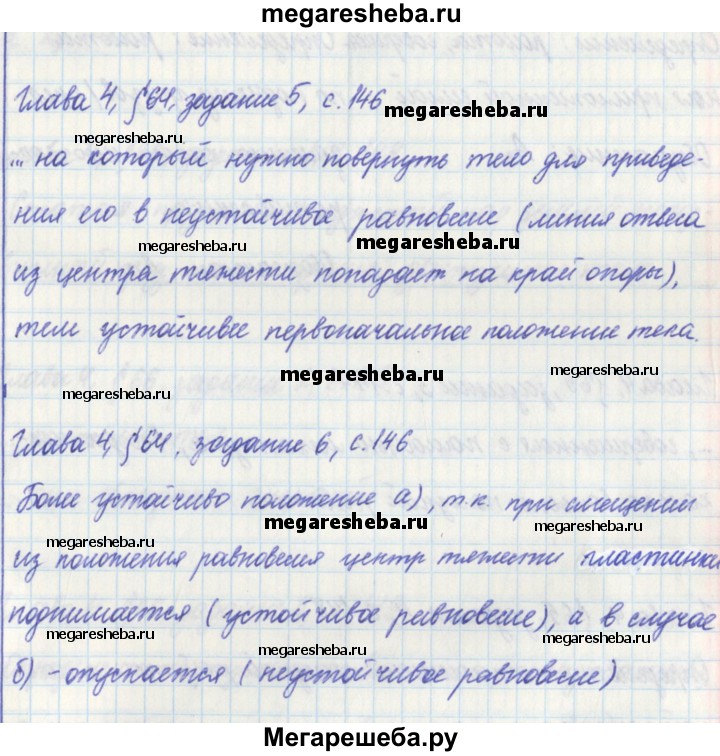 megaresheba.ru
Глава 4, § 64, задание 5, с. 146
megaresheba.ru
megaresheba.ru
... на который нужно повернуть тело для приведе-
ния его в неустойчивое равновесие (линия отвеса
megaresheba.ru
megaresheba.ru
из центра тяжести попадает на край опоры),
тем устойчивее первоначальное положение тела.
megaresheba.ru
megaresheba.ru
Глава 4, § 64, задание 6, с. 146
megaresheba.ru
Более устойчиво положение а), т.к. при смещении
megaresheba.ru
megaresheba.ru
из положения равновесия центр тяжести пластинка
поднимается (устойчивое равновесие), а в случае
megaresheba.ru
megaresheba.ru
megaresheba.ru
б) - опускается (неустойчивое равновесие)
Мегарешеба.ру